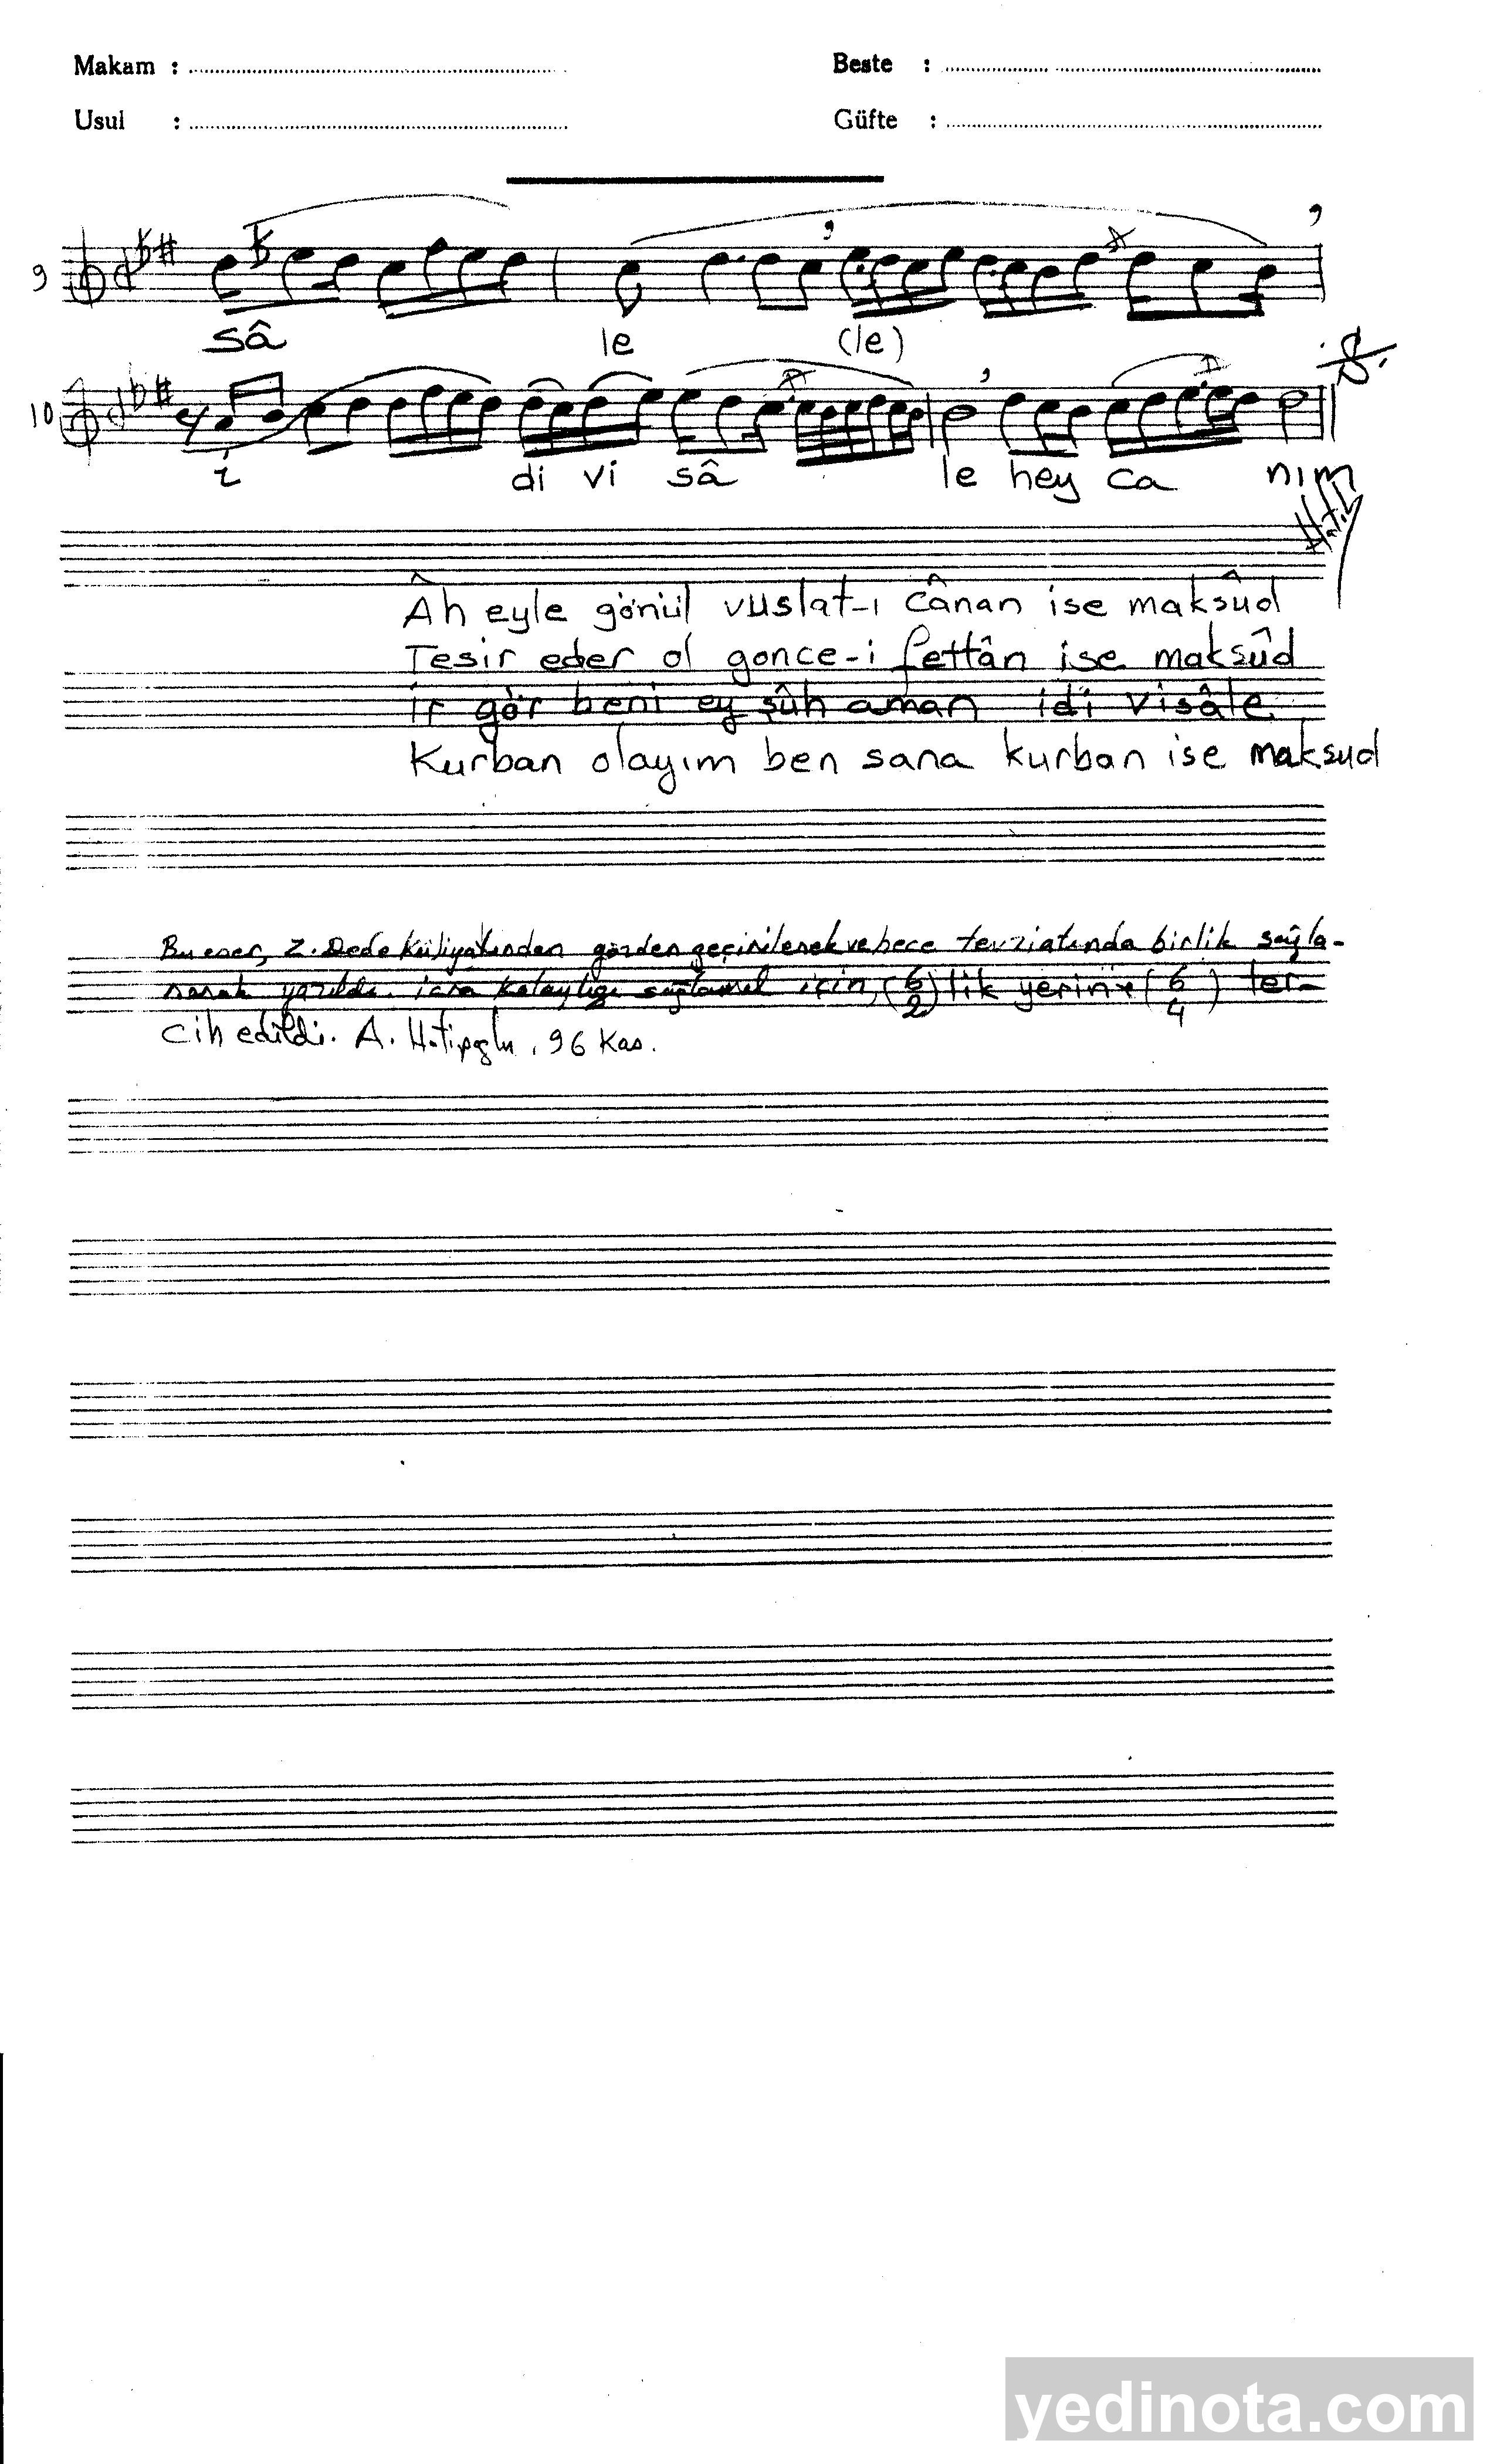 Makam : Beste :
Usul : Güfte :
9
sâ le (le)
10
i di vi sâ le hey ca nım
Hatib
Âh eyle gönül vuslat-ı cânan ise maksûd
Tesir eder ol gonce-i fettân ise maksûd
İr gör beni ey şûh aman idi visâle
Kurban olayım ben sana kurban ise maksud
Bu eser, Z. Dede Külliyatından gözden geçirilerek ve hece tevziatında birlik sağla-
narak yazıldı. icra kolaylığı sağlamak için, (6/2) lik yerine (6/4) ter-
cih edildi. A. Hatipoğlu, 96 Kas.
yedinota.com